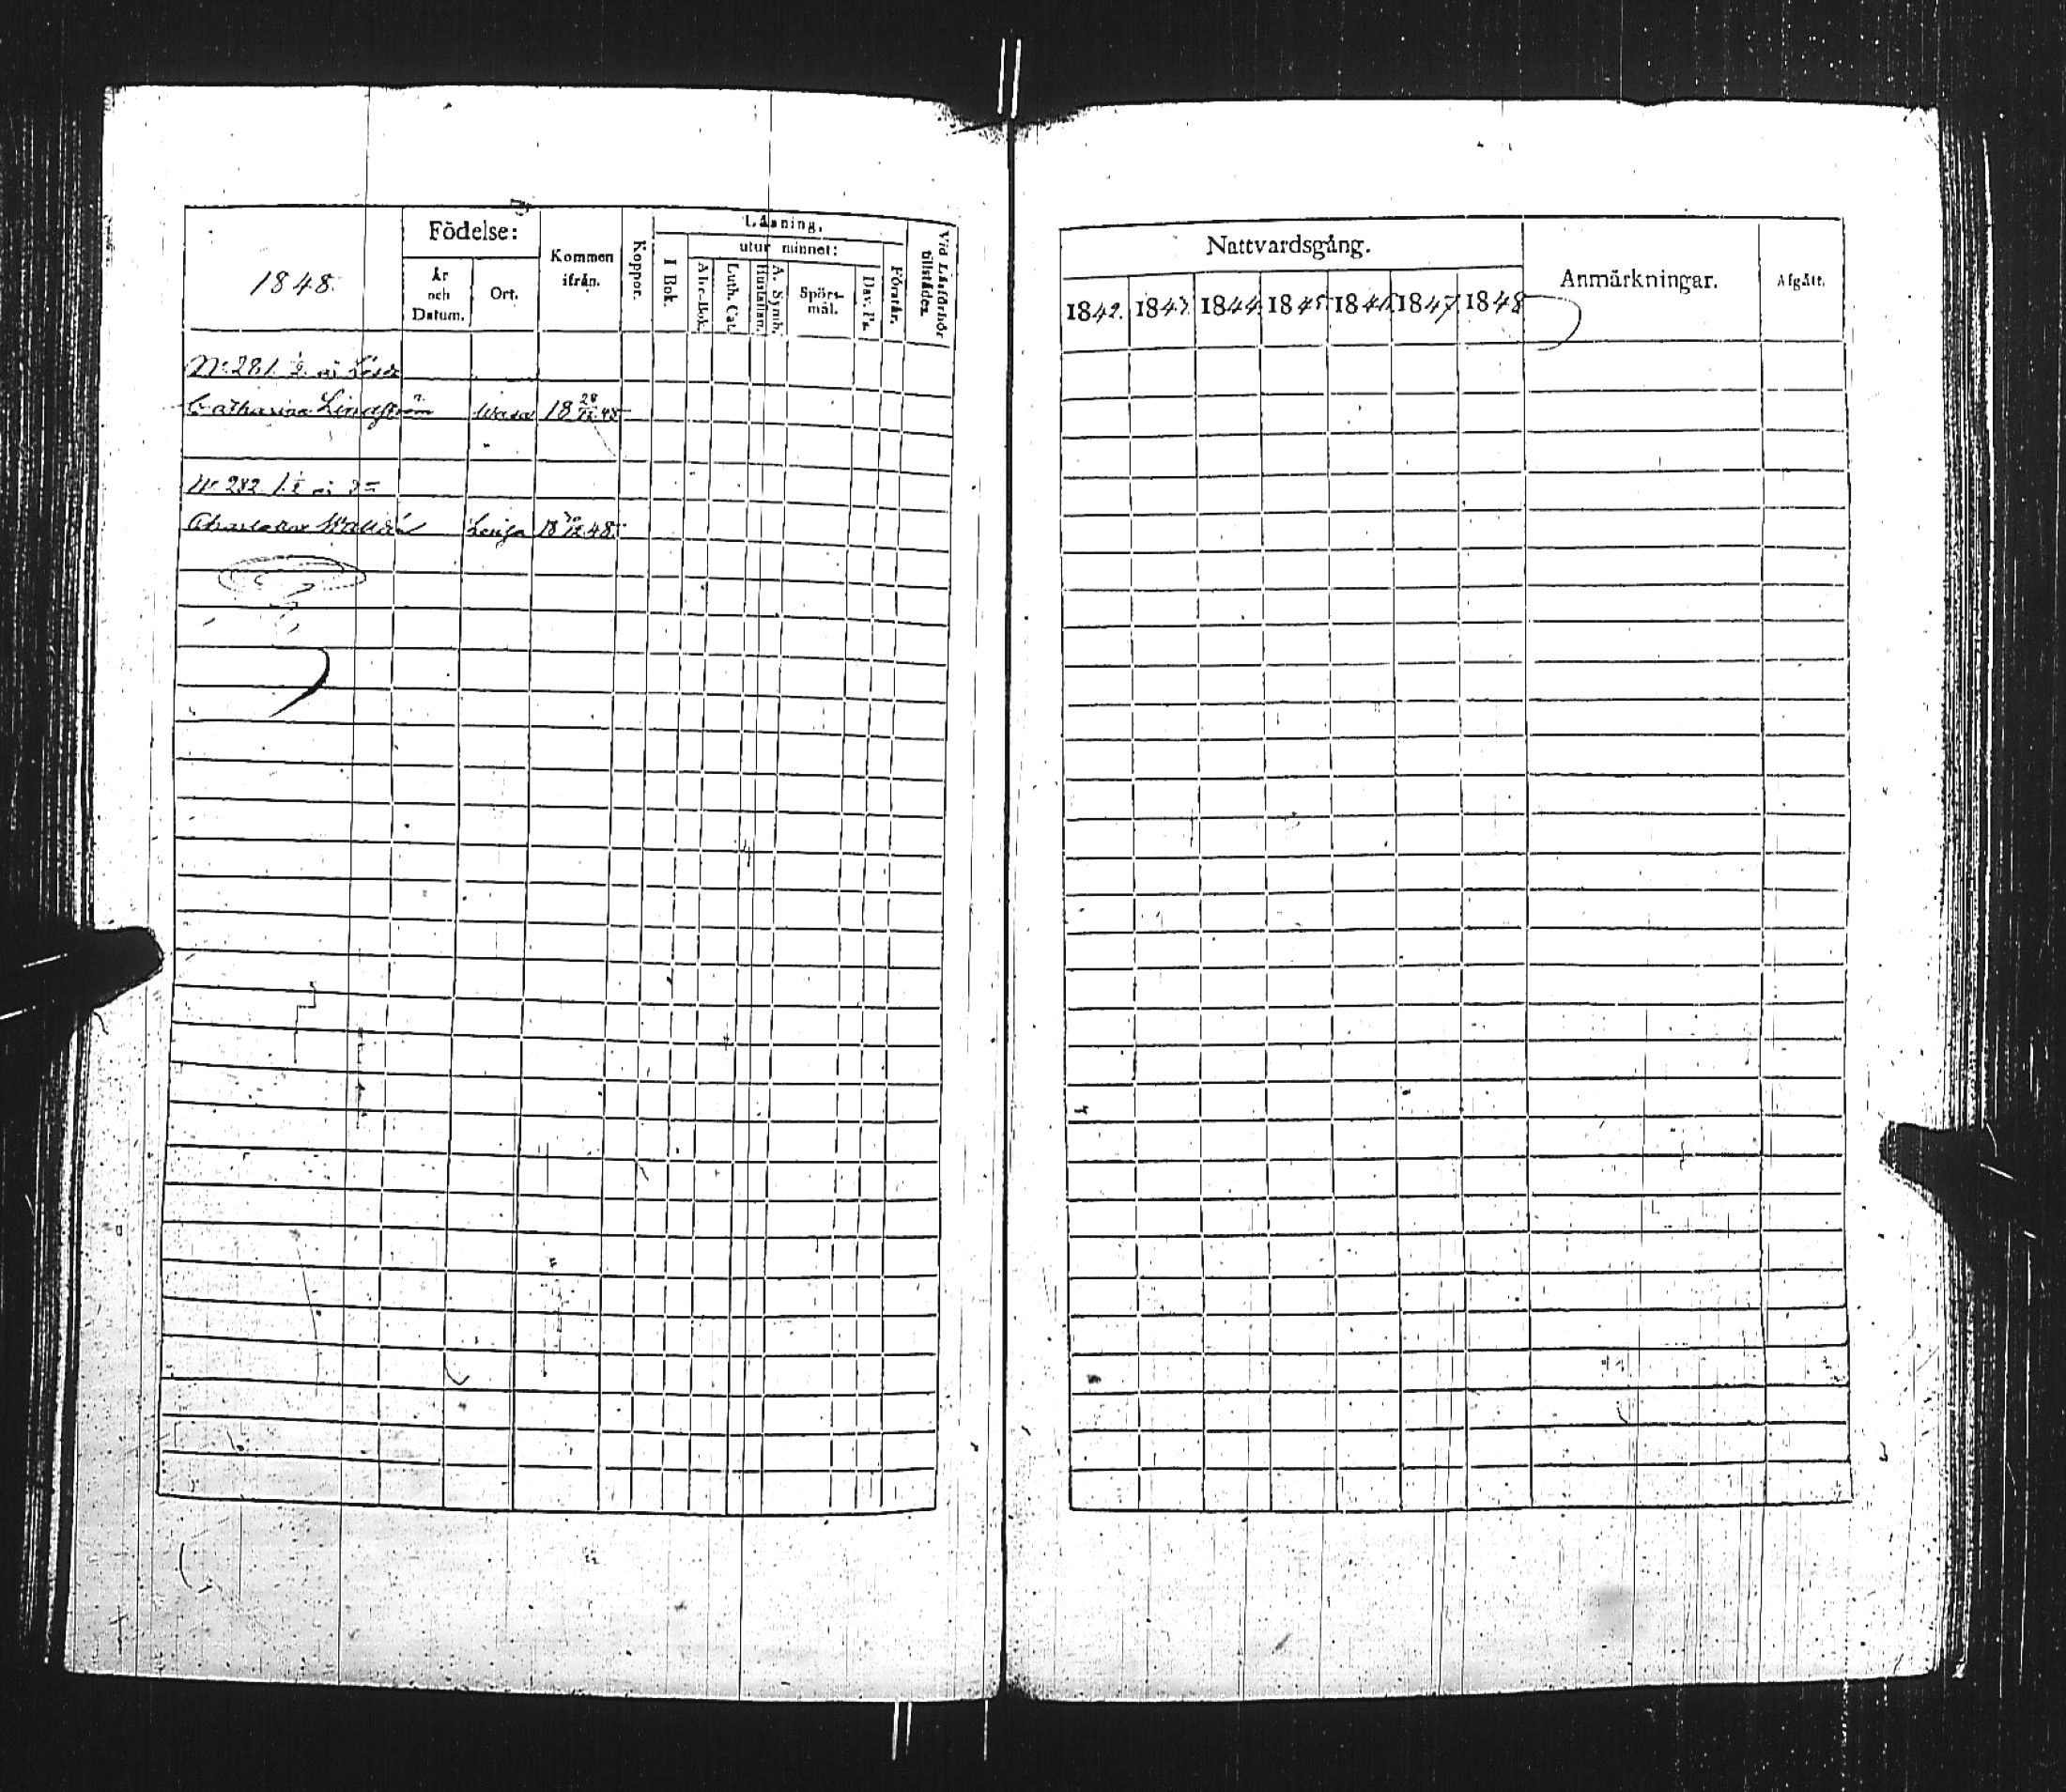 1848.
Födelse:
År och Datum.
Ort.
Kommen ifrån.
Koppor.
Läsning.
I Bok.
utur minnet:
Abc-Bok.
Luth. Cat.
Hustaflan.
A. Symb.
Spörs-mål.
Dav. Ps.
Förstår.
Vid Läsförhör tillstädes.
No 281
Catharina Lindström Wasa 18 28/12 48
No 282
18 48
Nattvardsgång.
1842. 1843. 1844. 1845. 1846. 1847. 1848
Anmärkningar.
Afgått.